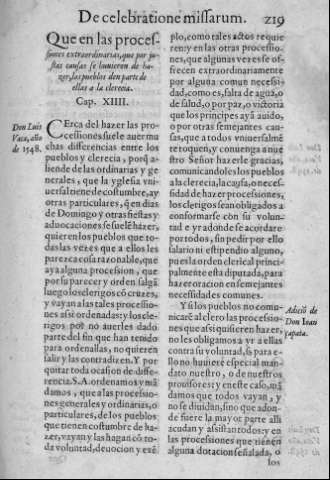 De celebratione missarum. 219
Que en las proces-
siones extraordinarias, que por ju-
stas causas se huuieren de ha-
zer, los pueblos den parte de
ellas a la clerecia.
Cap. XIIII.
Don Luis
Vaca, año
de 1548.
CErca del hazer las pro-
cessiones, suele auer mu
chas differencias entre los
pueblos y clerecia, porq̃ a-
llende de las ordinarias y ge
nerales, que la yglesia vni-
uersal tiene de costumbre, ay
otras particulares, q̃ en dias
de Domingo y otras fiestas y
aduocaciones se suelẽ házer,
quieren los pueblos que to-
das las vezes que a ellos les
parezca cosa razonable, que
aya alguna procession, que
por su parecer y orden salgã
luego los clerigos cõ cruzes,
y vayan a las tales processio-
nes assi ordenadas: y los cle-
rigos por no auerles dado
parte del fin que han tenido
para ordenallas, no quieren
salir y las contradizen. Y por
quitar toda ocasion de diffe-
rencia. S.A. ordenamos y mã
damos, que a las processio-
nes generales y ordinarias, o
particulares, de los pueblos
que tienen costumbre de ha-
zer, vayan y las hagan cõ to-
da voluntad, deuocion y exẽ
plo, como tales actos requie
ren: y en las otras processio-
nes, que algunas vezes se of-
frecen extraordinariamente
por alguna comun necessi-
dad, como es, falta de agua, o
de salud, o por paz, o victoria
que los principes ayã auido,
o por otras semejantes cau-
sas, que a todos vniuersalmẽ
te toquen, y conuenga a nue
stro Señor hazerle gracias,
comunicandoles los pueblos
a la clerecia, la causa, o neces-
sidad de hazer processiones,
los clerigos sean obligados a
conformarse con su volun-
tad e yr adonde se acordare
por todos, sin pedir por ello
salario ni estipendio alguno,
pues la orden clerical princi-
palmente esta diputada, para
hazer oracion en semejantes
necessidades comunes.
Y si los pueblos no comu-
nicarẽ al clero las processio-
nes que assi quisieren hazer,
no les obligamos a yr a ellas
contra su voluntad, si para e-
llo no huuiere especial man-
dato nuestro, o de nuestros
prouisores: y en este caso, mã
damos que todos vayan, y
no se diuidan, sino que adon-
de fuere la mayor parte alli
acudan y assistan todos: y en
las processiones que tienen
alguna dotacion señalada, o
los
Adiciõ de
Don Iuan
çapata.